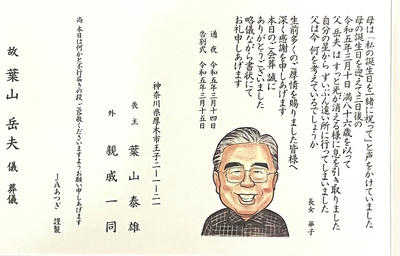 母は「私の誕生日を一緒に祝って」と声をかけていました
母の誕生日を迎えて三日後の
令和五年三月十日 満八十六歳を以って
父 岳夫は すっと光が消える様に息を引き取りました
自分の星から ずいぶん遠い所に行ってしまいました
父は今 何を考えているでしょうか
長女 華子
生前多くのご厚情を賜りました皆様へ
深く感謝を申しあげます
本日のご会葬 誠に
ありがとうございました
略儀ながら書状にて
お礼申しあげます
通夜 令和五年三月十四日
告別式 令和五年三月十五日
神奈川県厚木市王子二-一-二一
喪主 葉山泰雄
外 親戚一同
尚 本日は何かと不行届きの段 ご容赦くださいますようお願い申しあげます
JAあつぎ 謹製
故 葉山岳夫 儀 葬儀